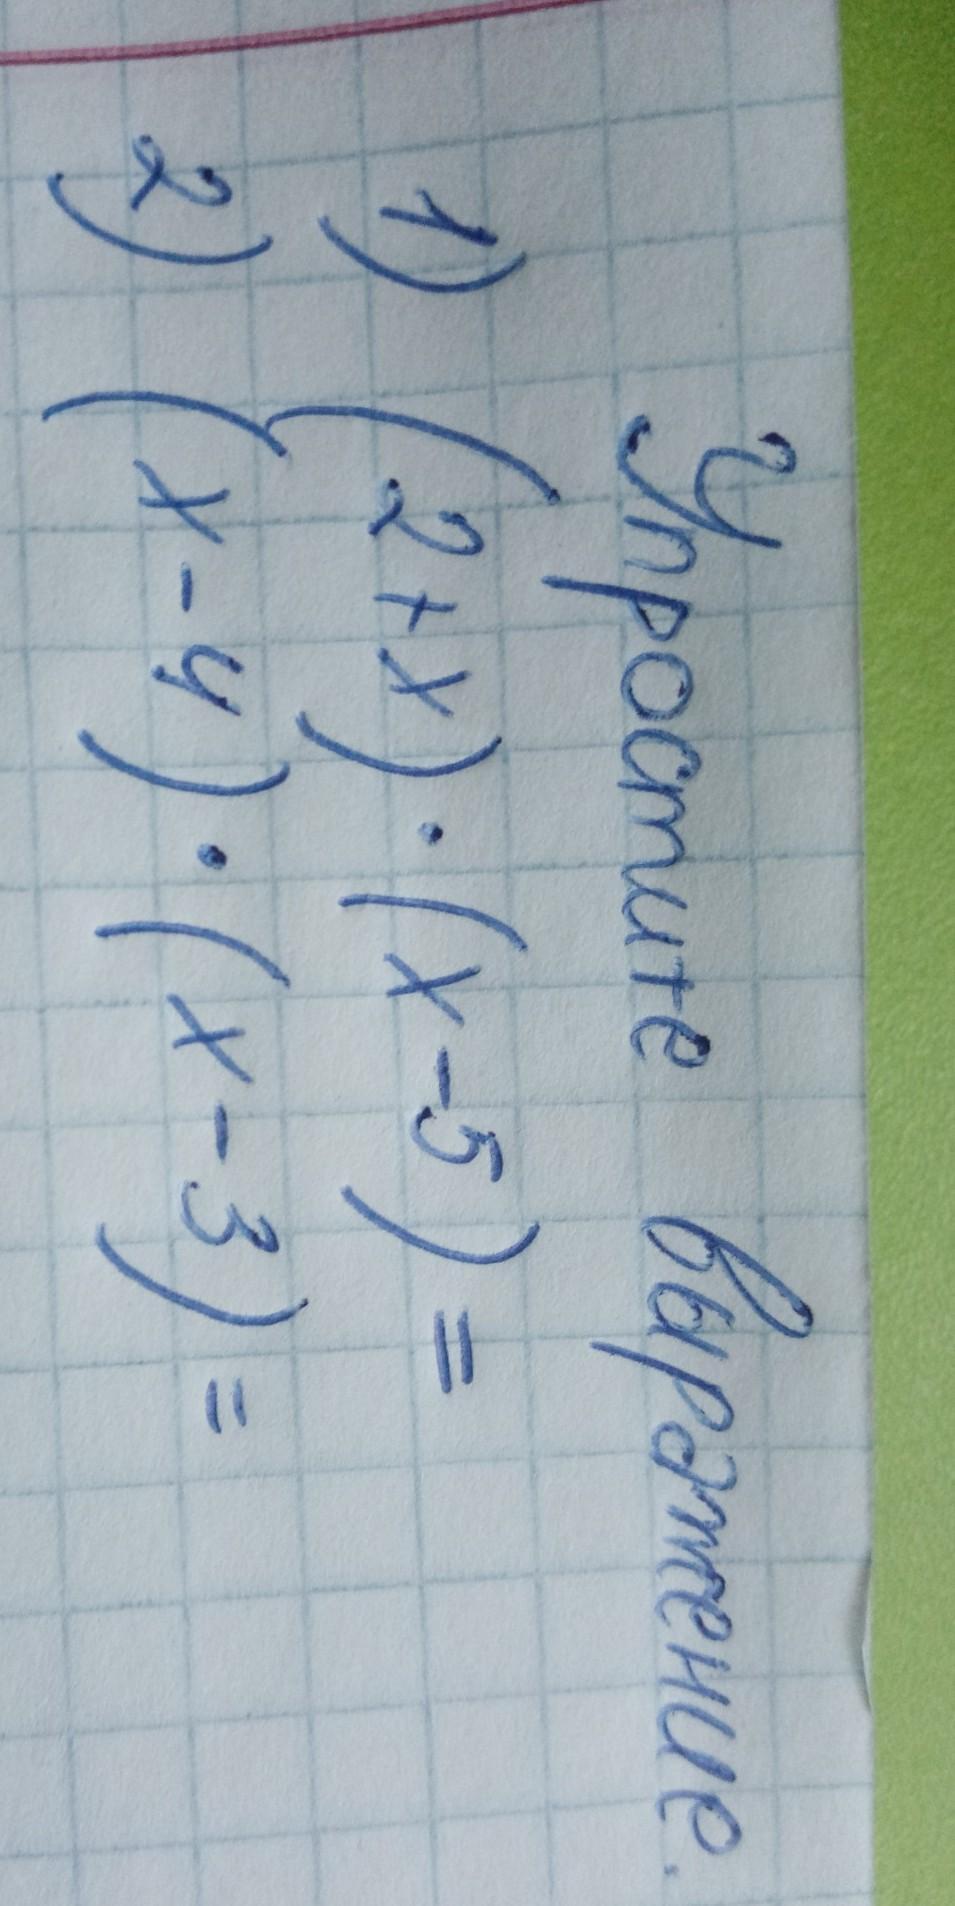 Упростите выражение.
1) (2+x)·(x-5)=
2) (x-4)·(x-3)=